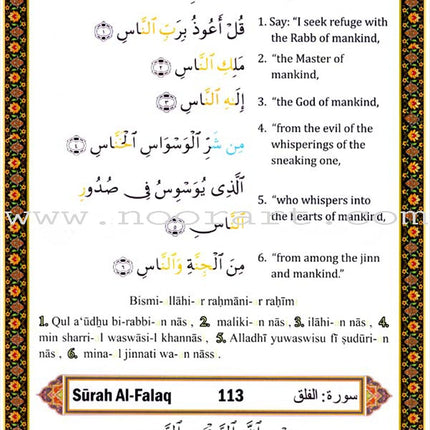 قُلْ أَعُوذُ بِرَبِّ النَّاسِ ١
1. Say: "I seek refuge with
the Rabb of mankind,
مَلِكِ النَّاسِ ٢
2. "the Master of
mankind,
إِلَٰهِ النَّاسِ ٣
3. "the God of mankind,
مِن شَرِّ الْوَسْوَاسِ الْخَنَّاسِ ٤
4. "from the evil of the
whisperings of the
sneaking one,
الَّذِى يُوَسْوِسُ فِى صُدُورِ
النَّاسِ ٥
5. "who whispers into
the hearts of mankind,
مِنَ الْجِنَّةِ وَالنَّاسِ ٦
6. "from among the jinn
and mankind."
www.noorart.com
Bismi- llāhi- r raḥmāni- r raḥīm
1. Qul a‘ūdhu bi-rabbi- n nās , 2. maliki- n nās , 3. ilāhi- n nās , 4.
min sharri- l waswāsi-l khannās , 5. Alladhī yuwaswisu fī ṣudūri- n
nās , 6. mina- l jinnati wa- n nāss .
Sūrah Al-Falaq 113 سورة: الفلق